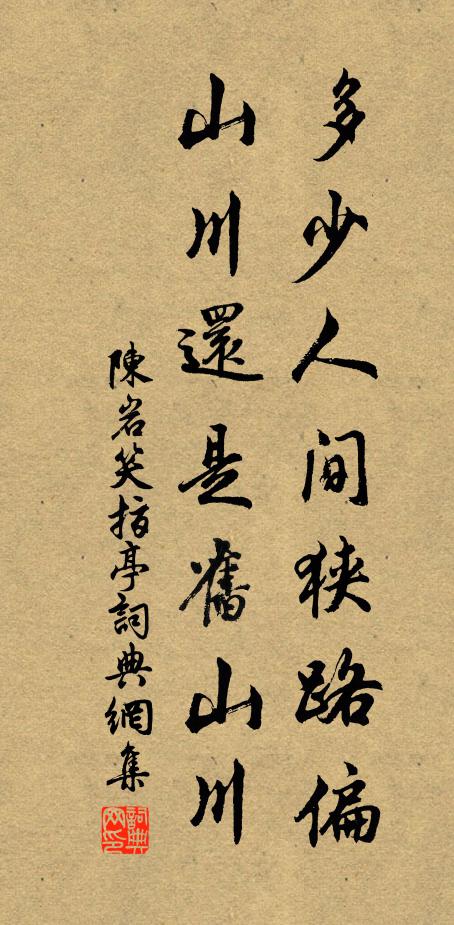 多少人間狹路偏
山川還是舊山川
陳岩笑指亭詞典網集
詞典網印